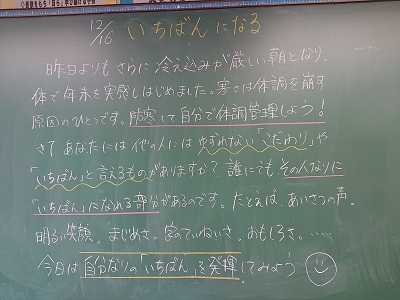 12/16 いちばんになる
昨日よりもさらに冷え込みが厳しい朝となり、
体で年末を実感しはじめました。寒さは体調を崩す
原因のひとつです。防寒して自分で体調管理しよう!
さて あなたには他の人にはゆずれない「こだわり」や
「いちばん」と言えるものがありますか?誰にでも その人なりに
「いちばん」になれる部分があるのです。たとえば、あいさつの声。
明るい笑顔。まじめさ。字のていねいさ。おもしろさ。……
今日は自分なりの「いちばん」を発揮してみよう